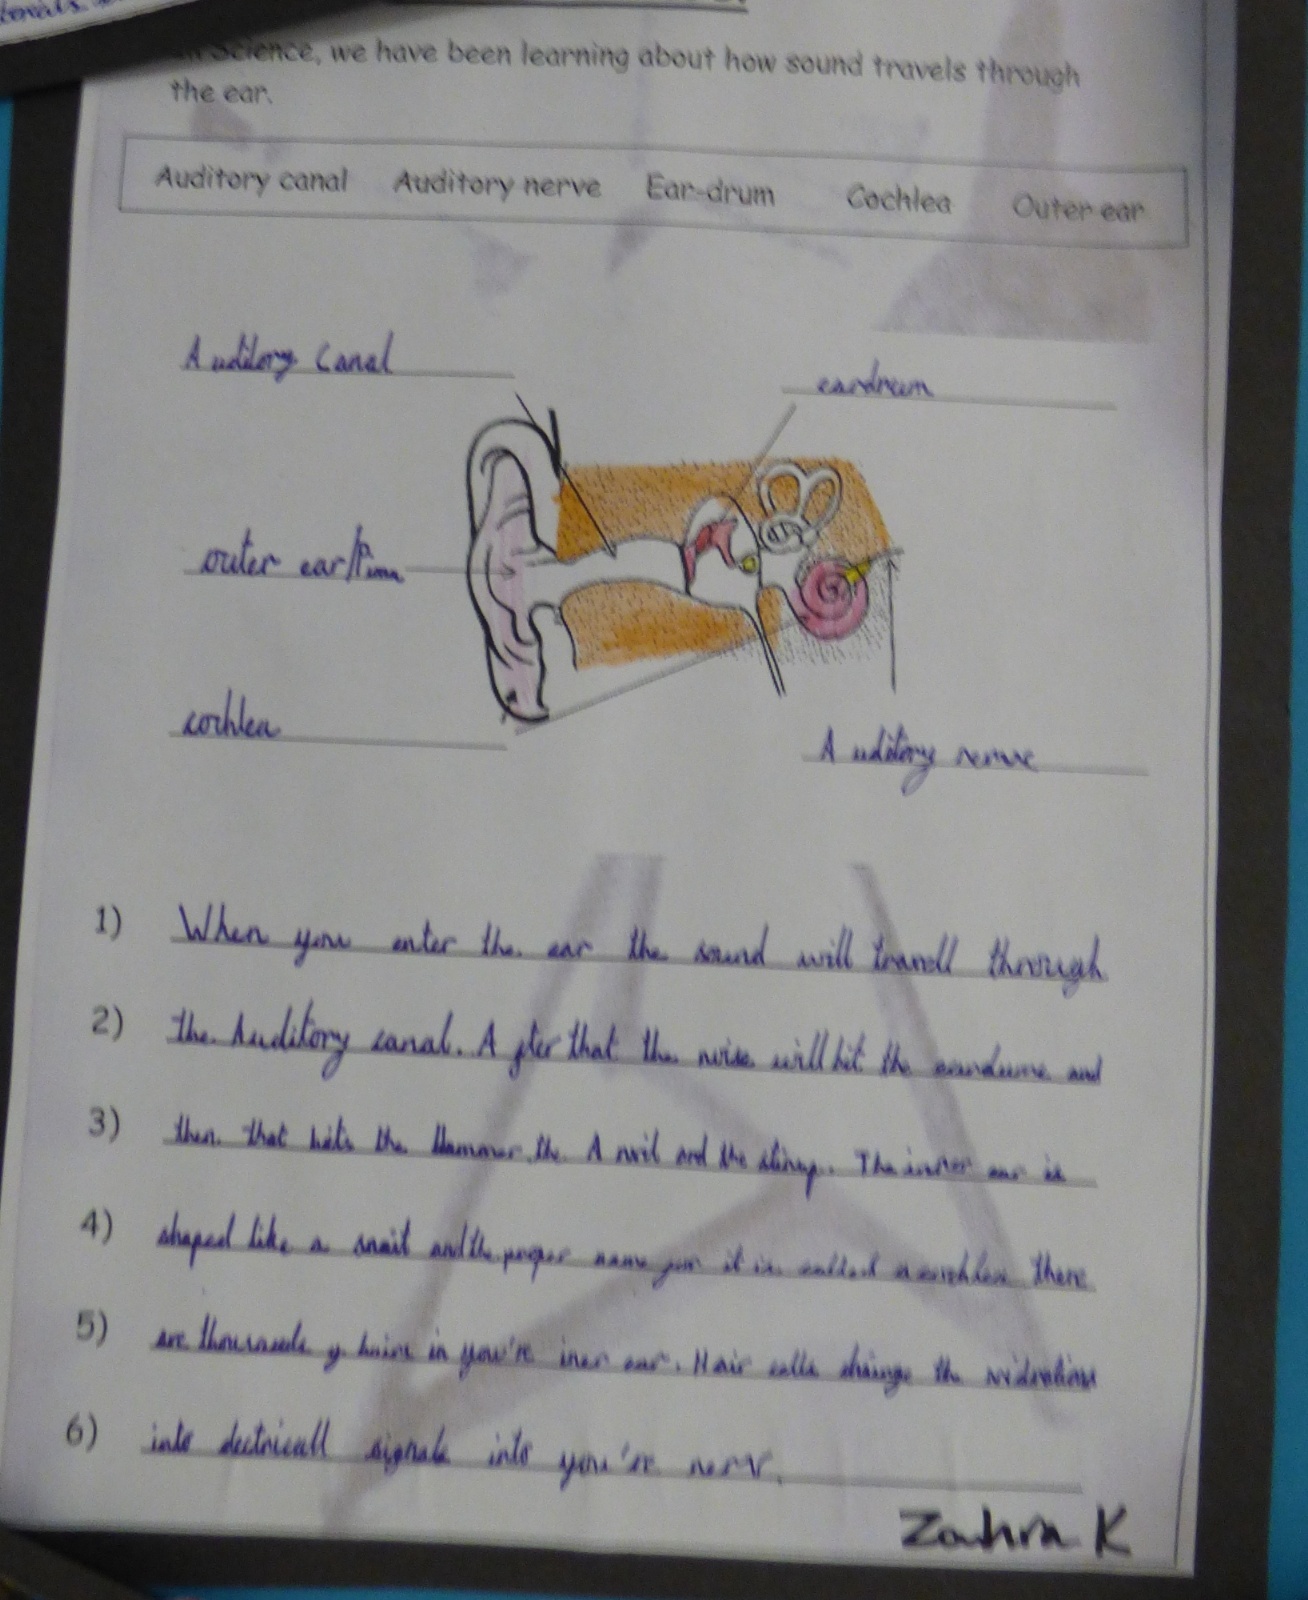 In Science, we have been learning about how sound travels through
the ear.
Auditory canal Auditory nerve Ear-drum Cochlea Outer ear
Auditory Canal
eardrum
outer ear/Pinna
cochlea
Auditory nerve
1) When you enter the ear the sound will travell through
2) the Auditory canal. After that the noise will hit the and
3) then that hits the Hammer the Anvil and the stirrup. The inner ear is
4) shaped like a snail and the proper name for it is called a cochlea there
5) are thousands of hairs in you're iner ear. Hair cells change the
6) into electricall signals into you're nerv.
Zahra K